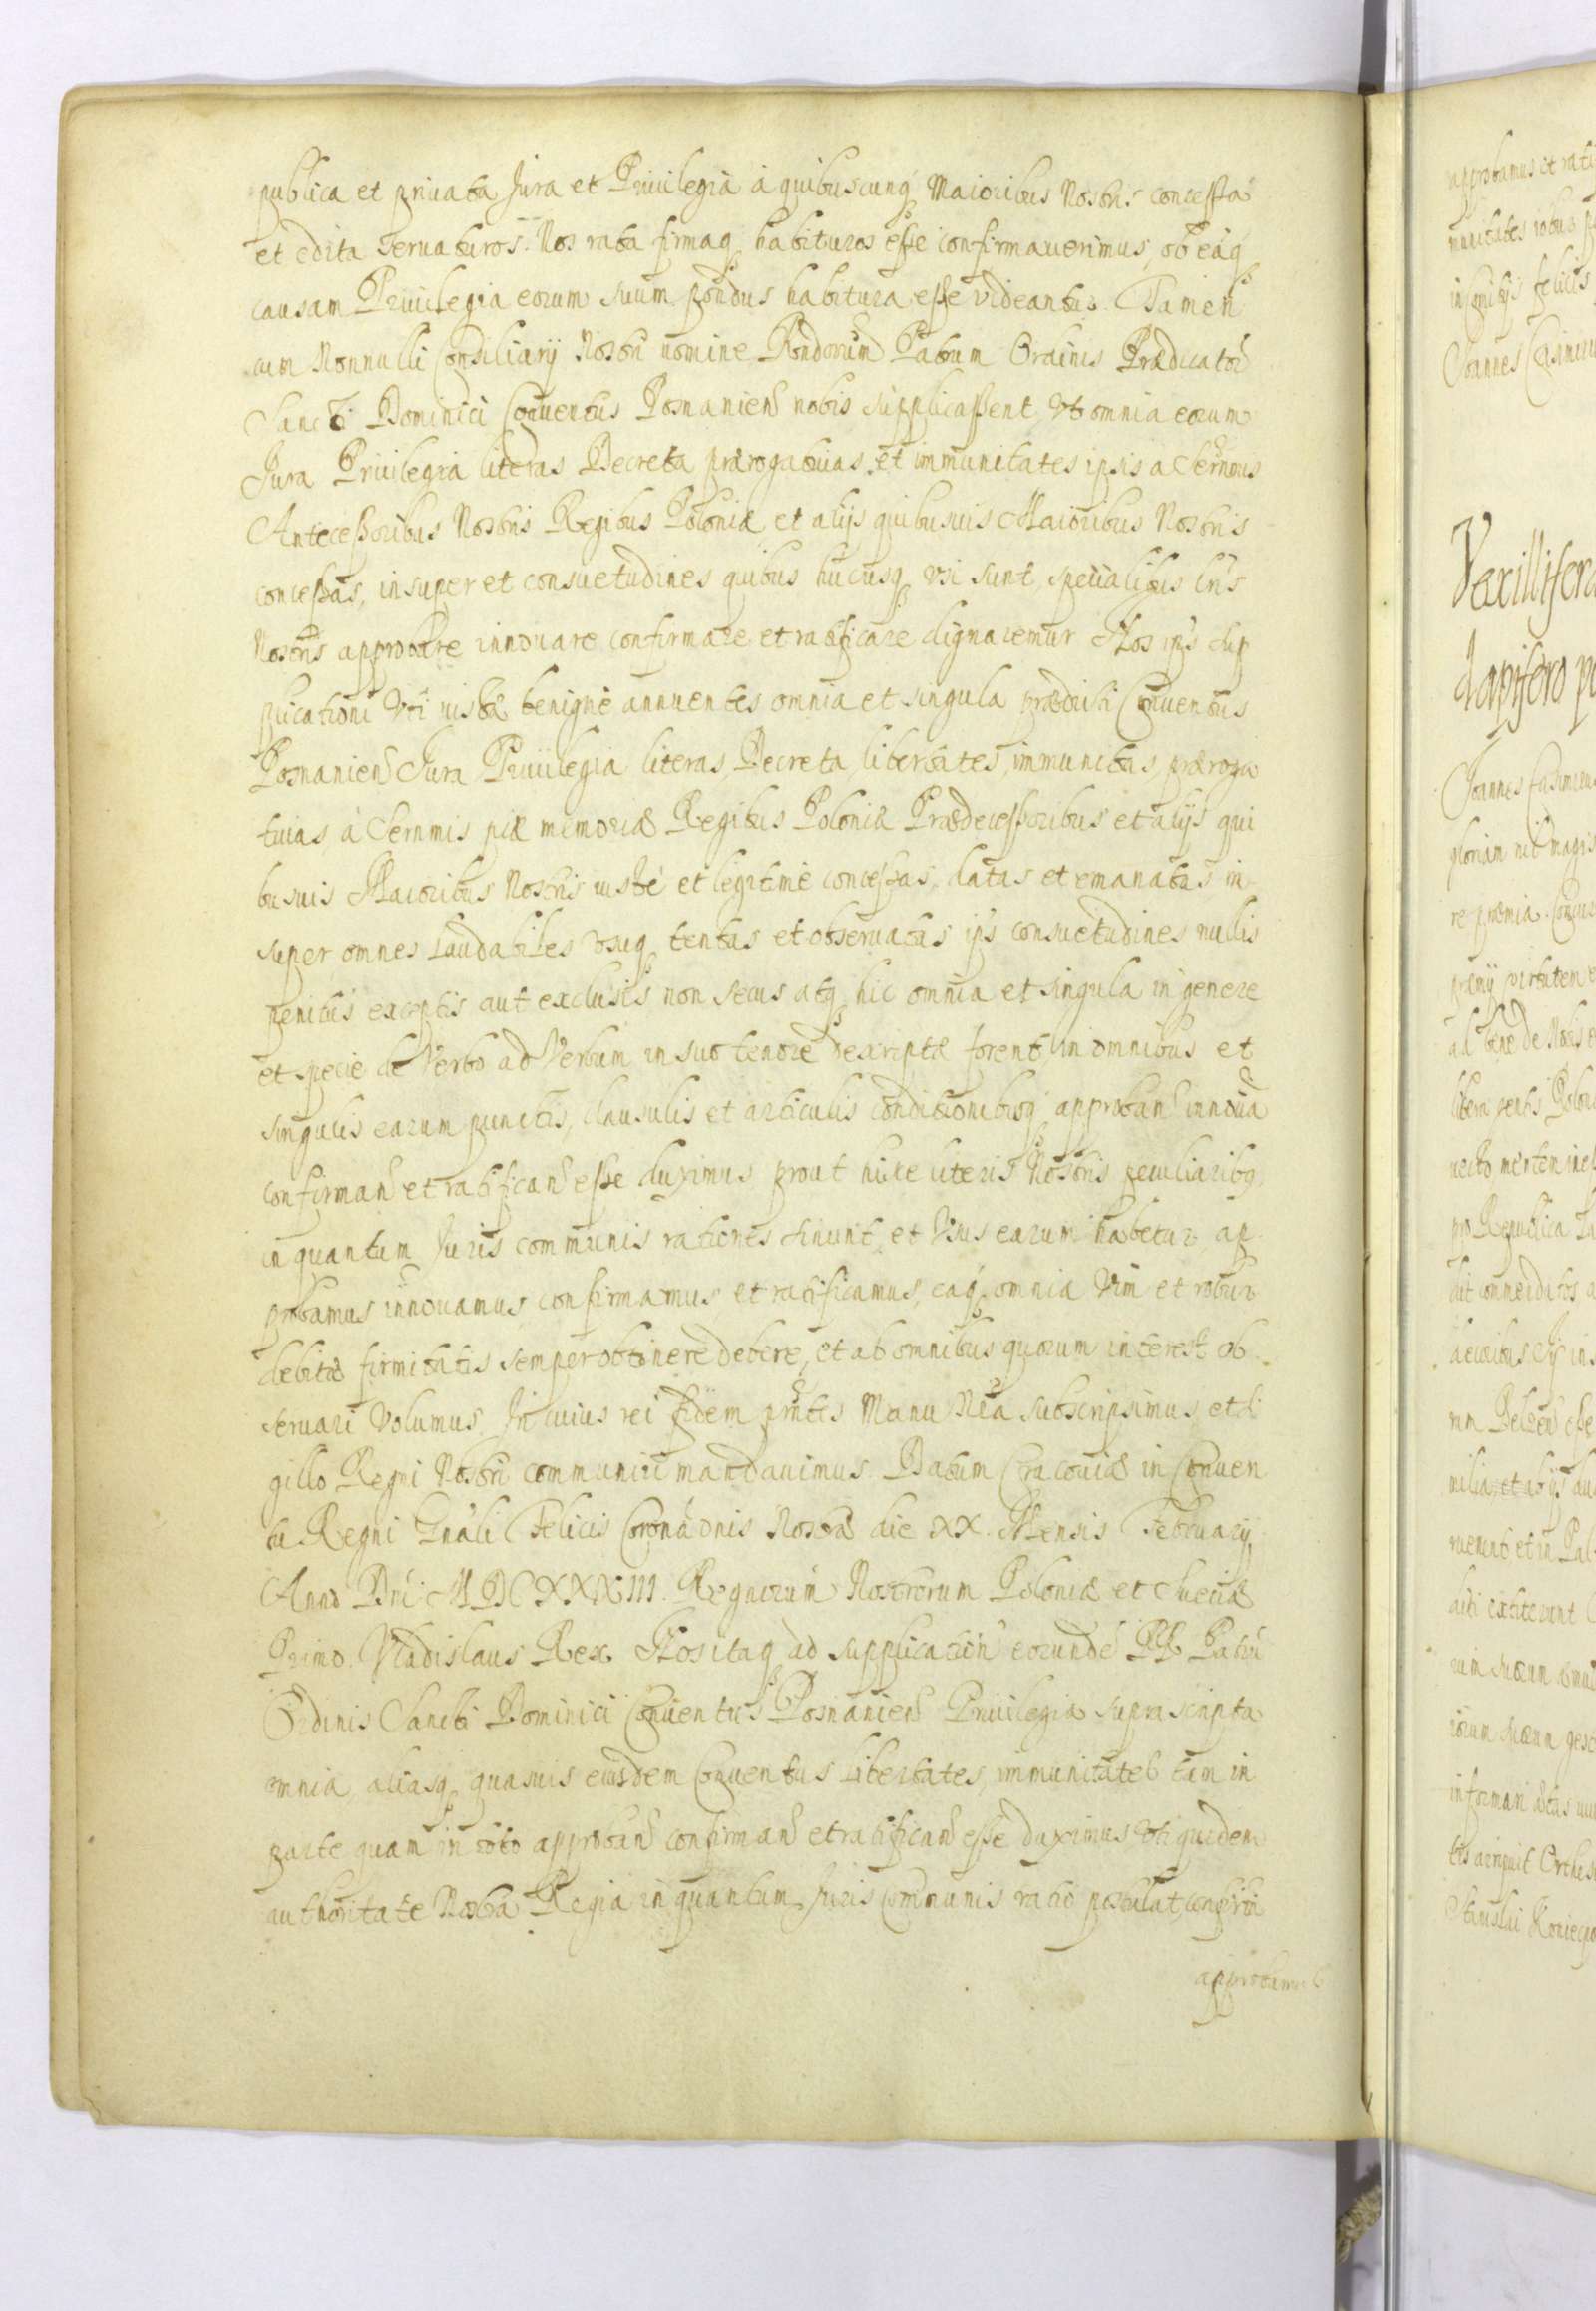 publica et priuata Jura et Priuilegia à quibuscunq Maioribus Nostris concessa
et edita seruaturos. Nos rata firmaq habituros esse confirmauerimus, ob eāq
causam Priuilegia eorum suum pondus habitura esse videantur. Tamen
cum Nonnulli Consiliarij Nostri nomine Rñdorum Patrum Ordinis Prædicatoƶ
Sancti Dominici Conuentus Posnanieñ nobis supplicassent, Vt omnia eorum
Jura Priuilegia literas Decreta prærogatiuas et immunitates ipsis a Sernmis
Antecessoribus Nostris Regibus Poloniæ et alijs quibusuis Maioribus Nostris
concessas, insuper et consuetudines quibus hucusq vsi sunt, specialibus lrīs
Nostris approbare innouare confirmare et ratificare dignaremur Nos ips sup
plicationi Vti iustæ benignè annuentes omnia et singula prædicti Conuentus
Posnanieñ Jura Priuilegia literas, Decreta, libertates, immunitates, præroga
tiuas, à Sernmis piæ memoriæ Regibus Poloniæ Prædecessoribus et alijs qui
busuis Maioribus Nostris iustè et legitimè concessas, datas et emanatas in
super omnes laudabiles vsuq tentas et obseruatas ips consuetudines nullis
penitus exceptis aut exclusis non secus atq hic omnia et singula in genere
et specie de Verbo ad Verbum in suo tenore descriptæ forent, in omnibus et
singulis earum punctis, clausulis et articulis conditionibusq approbañ innoua
confirmañ et ratificañ esse duximus prout hisce literis Nostris peculiaribq
in quantum Juris communis rationes sinunt, et Vsus earum habetur ap
probamus innouamus, confirmamus et ratificamus, eaq omnia Vim et robur
debitæ firmitatis semper obtinere debere, et ab omnibus quorum interest ob
seruari Volumus. In cuius rei fidem pñtes Manu Nrā subscripsimus et si
gillo Regni Nostri communiri mandauimus. Datum Cracouiæ in Conuen
tu Regni Gnāli Felicis Coronāonis Nostræ die XX. Mensis February
Anno Dnī. MDCXXXIII. Regnorum Nostrorum Poloniæ et Sueciæ
Primo. Vladislaus Rex. Nos itaq ad supplicatioñ eorundē RR Patrū
Ordinis Sancti Dominici Conuentus Posnanieñ Priuilegia supra scripta
omnia aliasq quasuis eiusdem Conuentus libertates, immunitates tam in
parte quam in toto approbañ confirmañ et ratificañ esse duximus Vti quidem
authoritate Nostra Regia in quantum Juris Communis ratio postulat, confirm
approbamus